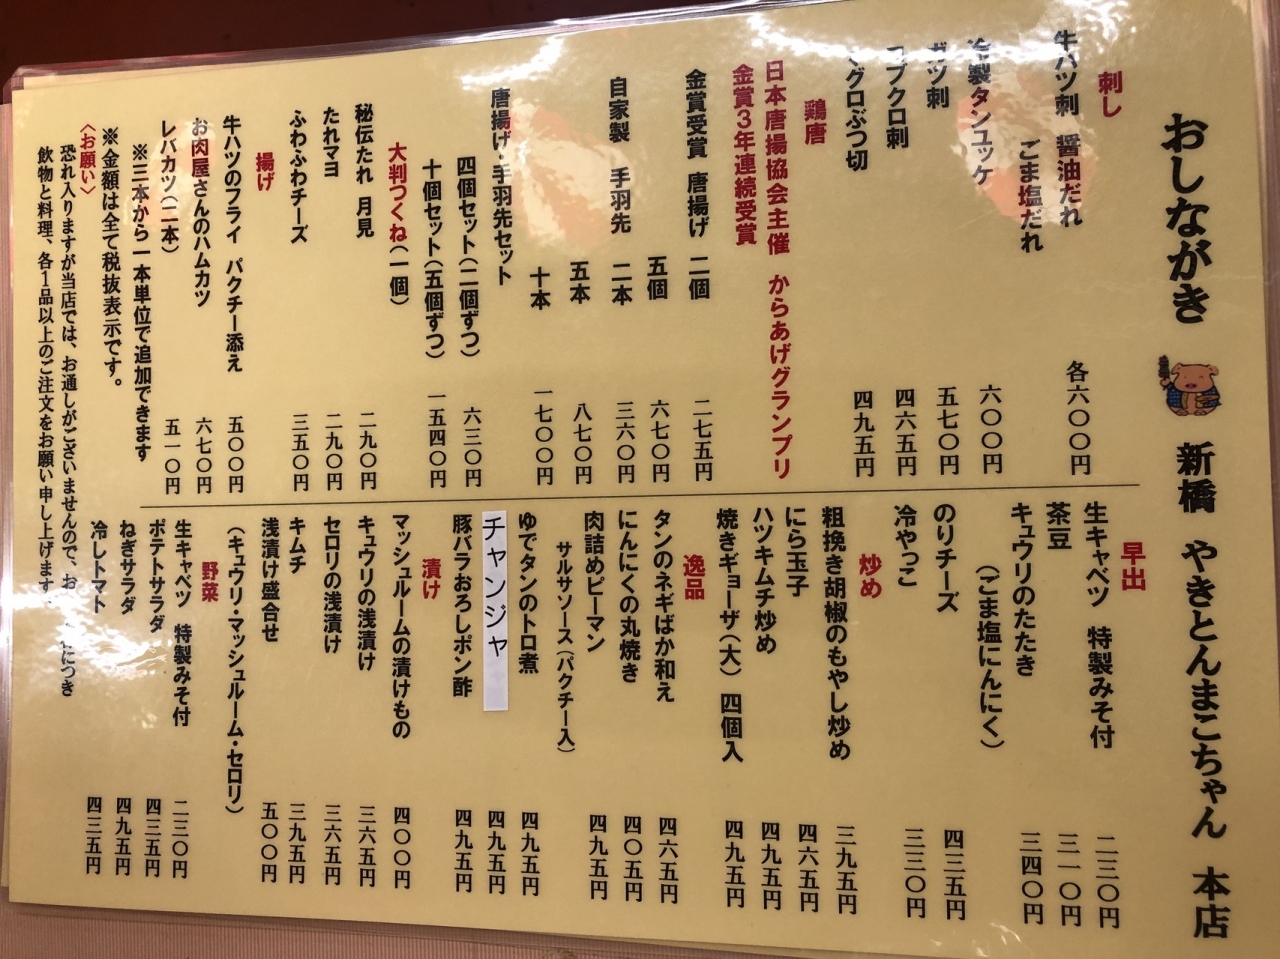 おしながき 新橋 やきとんまこちゃん 本店
刺し
牛ハツ刺 醤油だれ 各六〇〇円
ごま塩だれ
冷製タンユッケ 六〇〇円
ガツ刺 五七〇円
コブクロ刺 四六五円
マグロぶつ切 四九五円
鶏唐
日本唐揚協会主催 からあげグランプリ
金賞3年連続受賞
金賞受賞 唐揚げ 二個 二七五円
五個 六七〇円
自家製 手羽先 二本 三六〇円
五本 八七〇円
十本 一七〇〇円
唐揚げ・手羽先セット
四個セット(二個ずつ) 六三〇円
十個セット(五個ずつ) 一五四〇円
大判つくね(一個)
秘伝たれ 月見 二九〇円
たれマヨ 二九〇円
ふわふわチーズ 三五〇円
揚げ
牛ハツのフライ パクチー添え 五〇〇円
お肉屋さんのハムカツ 六七〇円
レバカツ(二本) 五一〇円
※三本から一本単位で追加できます
※金額は全て税抜表示です。
〈お願い〉
恐れ入りますが当店では、お通しがございませんので、お につき
飲物と料理、各1品以上のご注文をお願い申し上げます。
早出
生キャベツ 特製みそ付 二三〇円
茶豆 三一〇円
キュウリのたたき 三四〇円
(ごま塩にんにく)
のりチーズ 四三五円
冷やっこ 三三〇円
炒め
粗挽き胡椒のもやし炒め 三九五円
にら玉子 四六五円
ハツキムチ炒め 四九五円
焼きギョーザ(大) 四個入 四九五円
逸品
タンのネギばか和え 四六五円
にんにくの丸焼き 四〇五円
肉詰めピーマン 四九五円
サルサソース(パクチー入)
ゆでタンのトロ煮 四九五円
チャンジャ 四九五円
豚バラおろしポン酢 四九五円
漬け
マッシュルームの漬けもの 四〇〇円
キュウリの浅漬け 三六五円
セロリの浅漬け 三六五円
キムチ 三九五円
浅漬け盛合せ 五〇〇円
(キュウリ・マッシュルーム・セロリ)
野菜
生キャベツ 特製みそ付 二三〇円
ポテトサラダ 四三五円
ねぎサラダ 四九五円
冷しトマト 四三五円